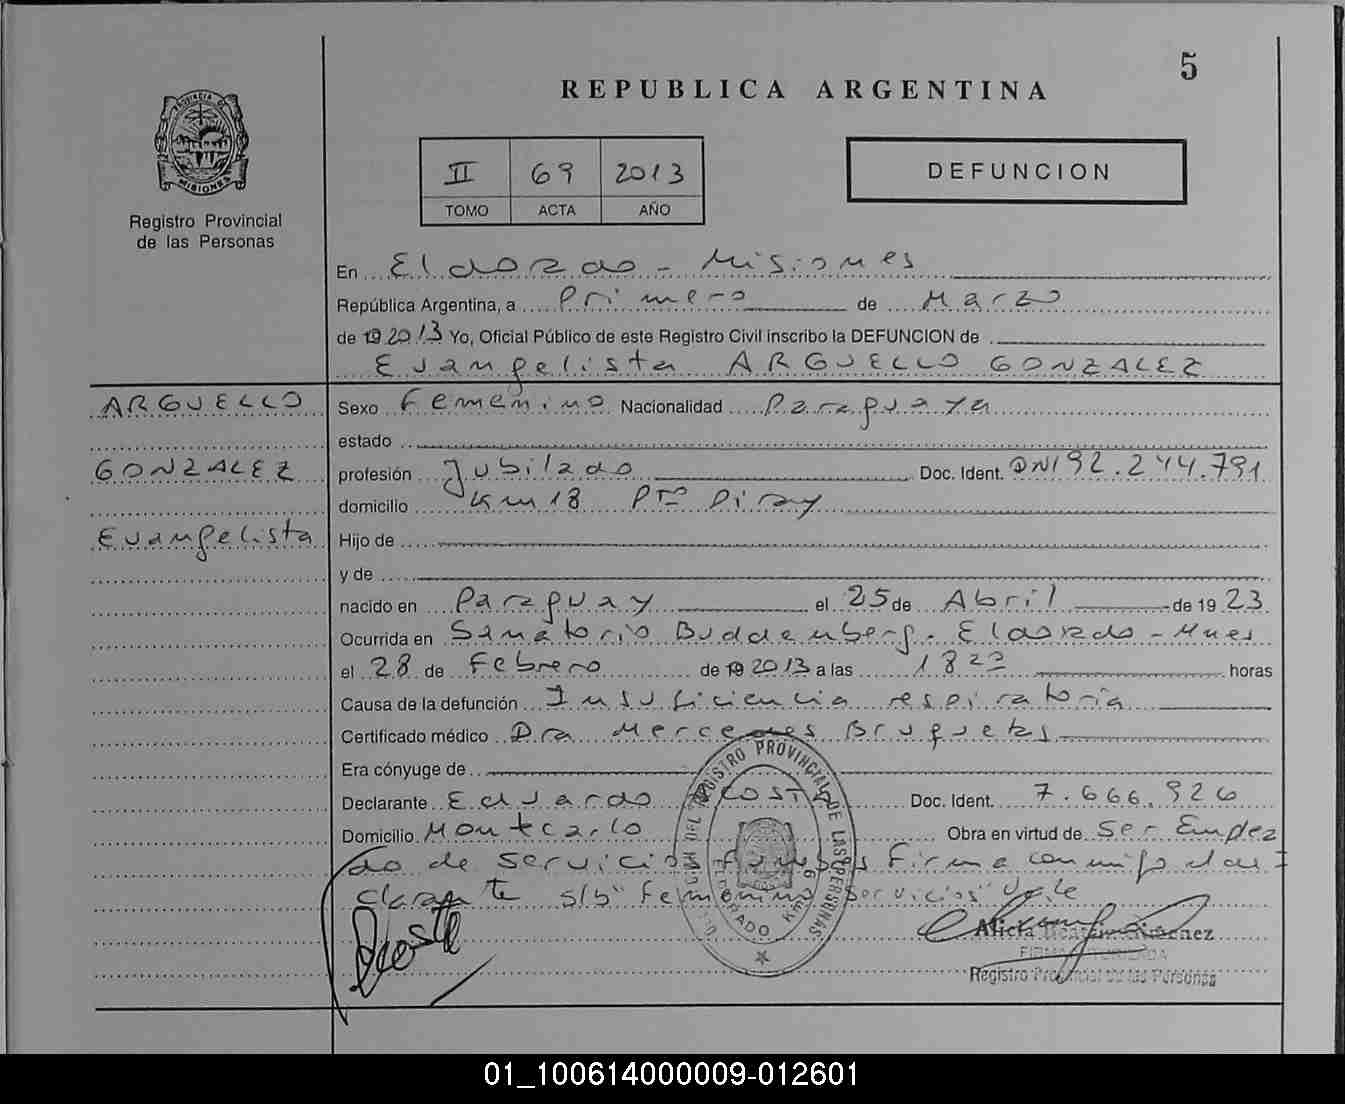 5
REPUBLICA ARGENTINA
PROVINCIA DE
MISIONES
Registro Provincial
de las Personas
II 69 2013
TOMO ACTA AÑO
DEFUNCION
En Eldorado - Misiones
República Argentina, a Primero de Marzo
de 19 2013 Yo, Oficial Público de este Registro Civil inscribo la DEFUNCION de
Evangelista ARGUELLO GONZALEZ
ARGUELLO
GONZALEZ
Evangelista
Sexo Femenino Nacionalidad Paraguaya
estado
profesión Jubilado Doc. Ident. DNI 92.244.791
domicilio Km 18 Pto Piray
Hijo de
y de
nacido en Paraguay el 25 de Abril de 19 23
Ocurrida en Sanatorio Buddenberg. Eldorado - Mnes
el 28 de Febrero de 19 2013 a las 18 horas
Causa de la defunción Insuficiencia respiratoria
Certificado médico Dra Mercedes
Era cónyuge de
Declarante Eduardo ACOSTA Doc. Ident. 7.666.926
Domicilio Montecarlo Obra en virtud de Ser Emplea
do de servicios funebres Firma conmigo el de=
clarante s/b "Femenino servicios" Vale
Acosta
REGISTRO PROVINCIAL DE LAS PERSONAS
ELDORADO Km 9
Alicia Beatriz Gimenez
FIRMA AUTORIZADA
Registro Provincial de las Personas
01_100614000009-012601